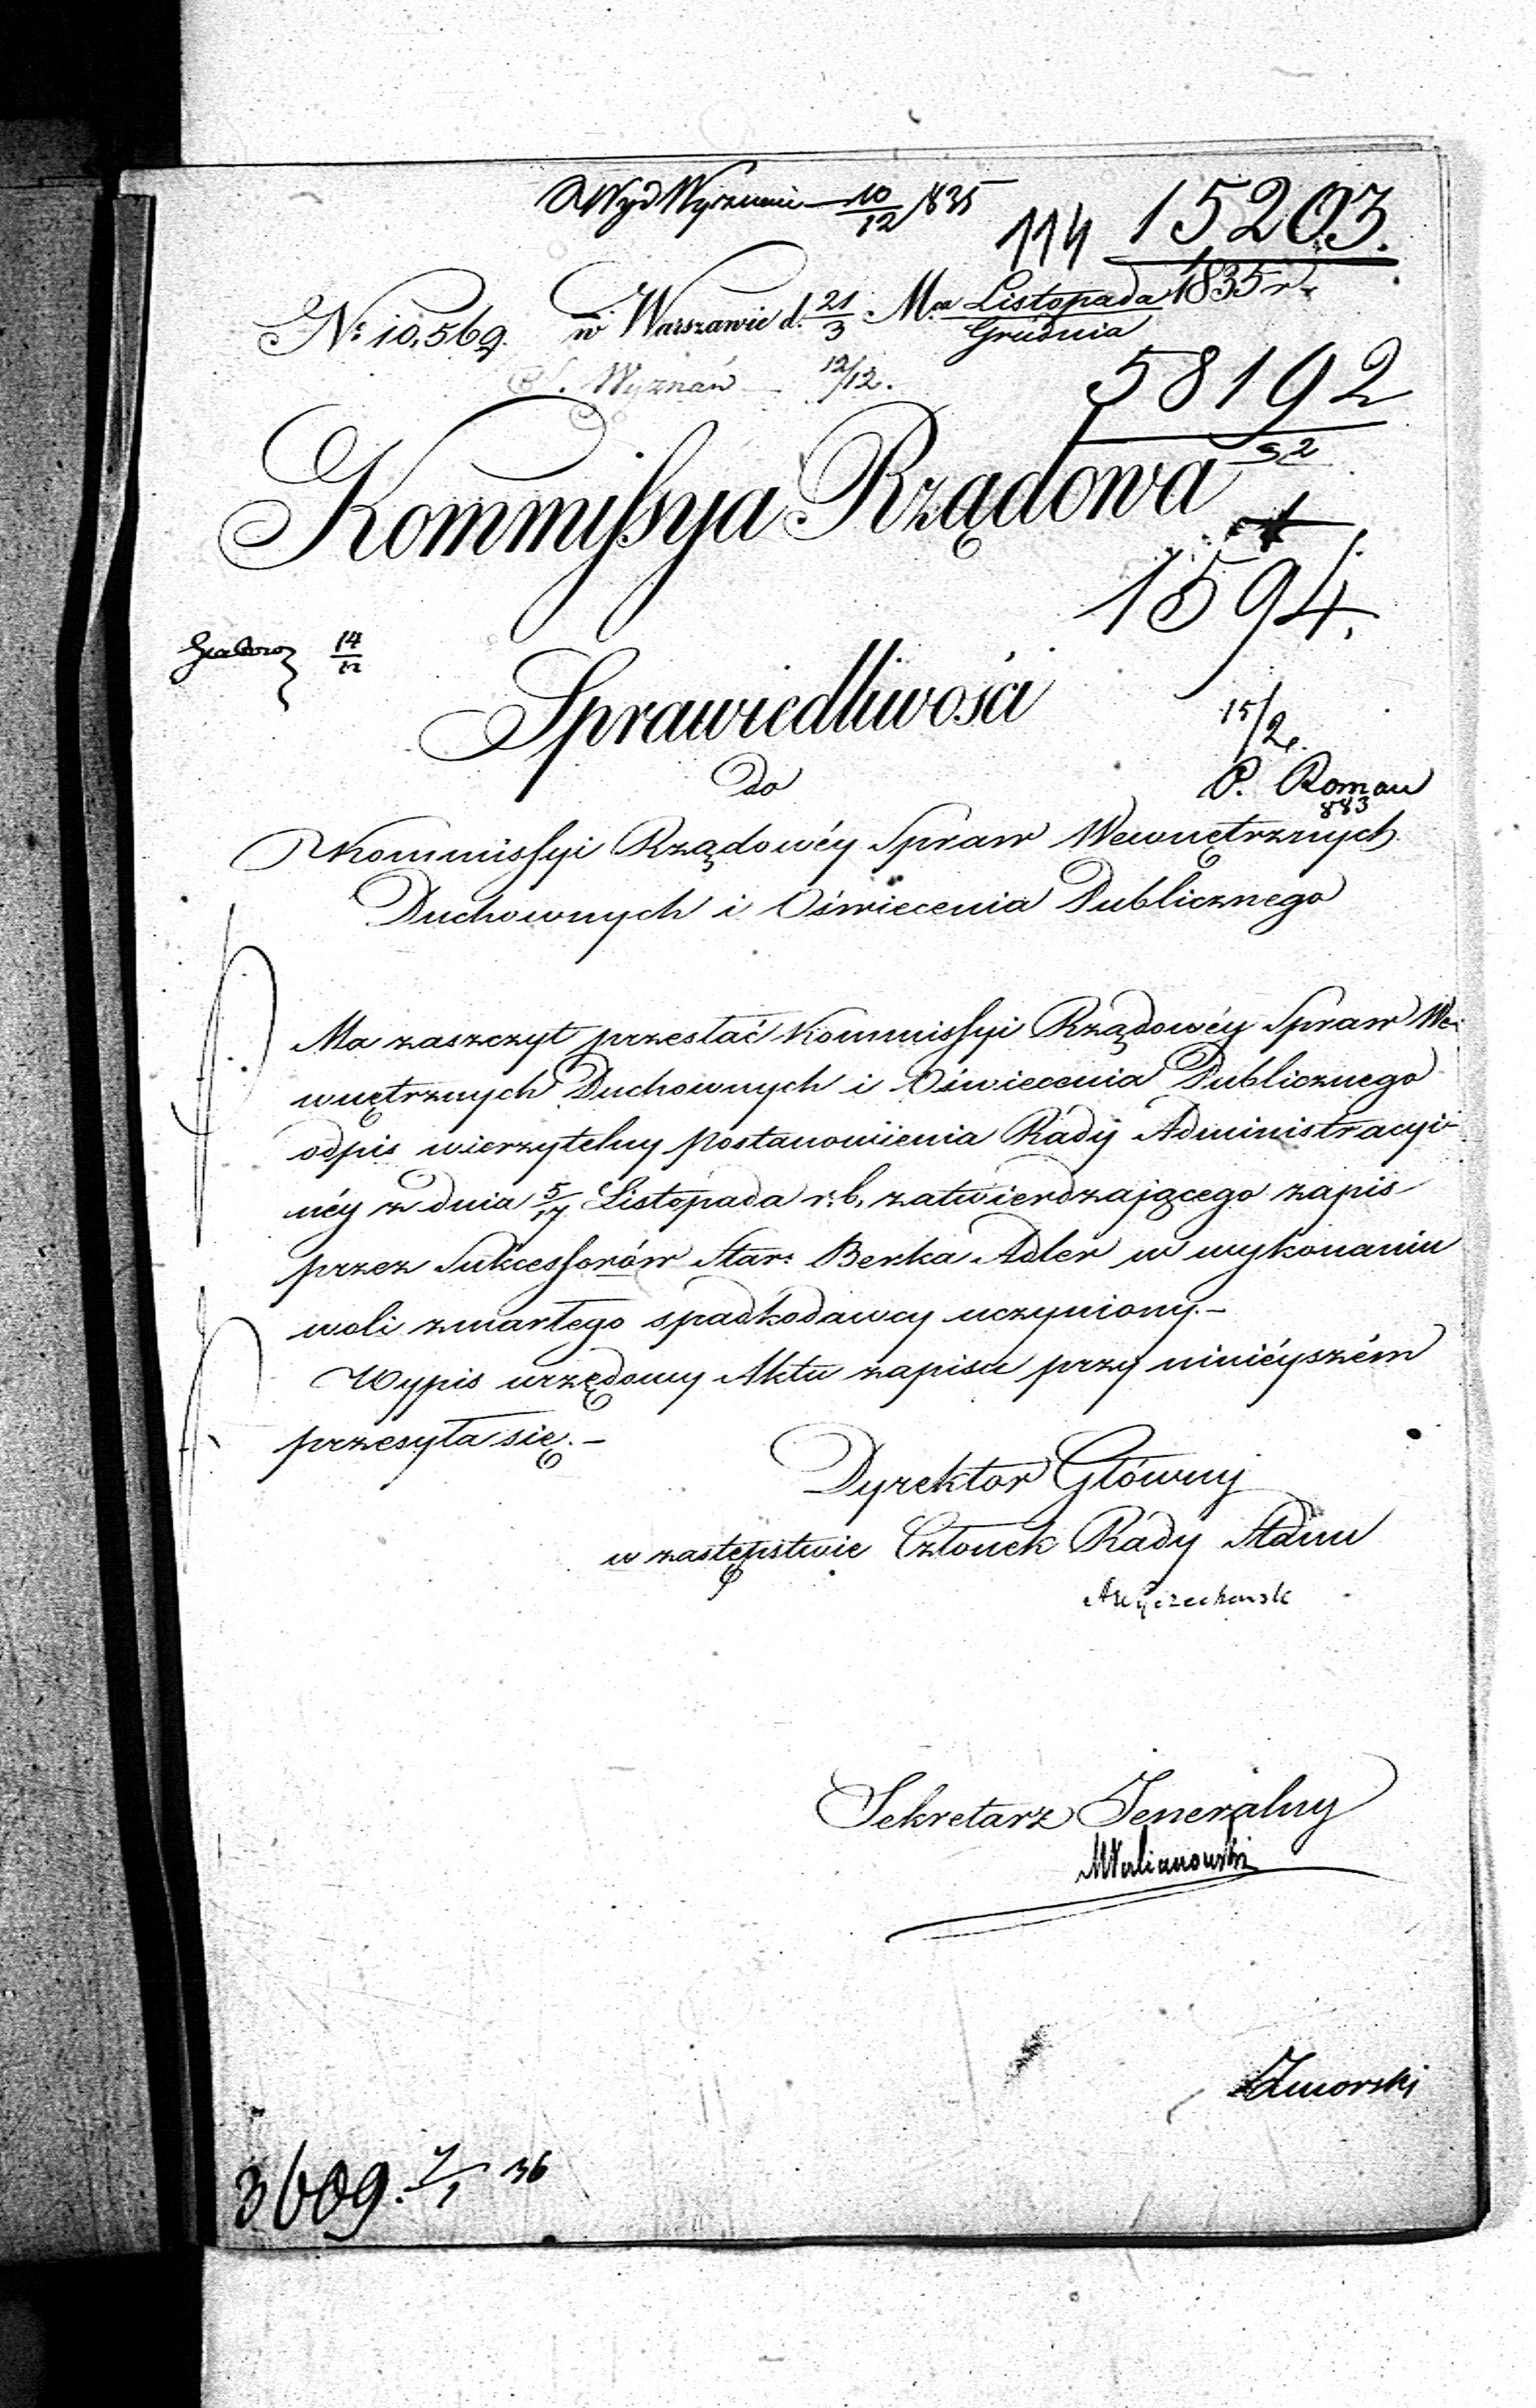 15203.
114
10/12 1835
No 10,569. w Warszawie d. 21/3 M.ca Listopada/Grudnia 1835 r.
Wyznań 12/12.
58192
52
Kommissya Rządowa
1594.
14/12
Sprawiedliwości
15/2.
do
P. Roman
883
Kommissyi Rządowéy Spraw Wewnętrznych
Duchownych i Oświecenia Publicznego
Ma zaszczyt przesłać Kommissyi Rządowéy Spraw We-
wnętrznych Duchownych i Oświecenia Publicznego
odpis wierzytelny postanowienia Rady Administracyi-
néy z dnia 5/17 Listopada r. b. zatwierdzającego zapis
przez Sukcessorów Star: Berka Adler w wykonaniu
woli zmarłego spadkodawcy uczyniony.-
Wypis urzędowy Aktu zapisu przy ninieyszém
przesyła się.-
Dyrektor Główny
w zastępstwie Członek Rady Stanu
Sekretarz Jeneralny
3609. 7/1 36